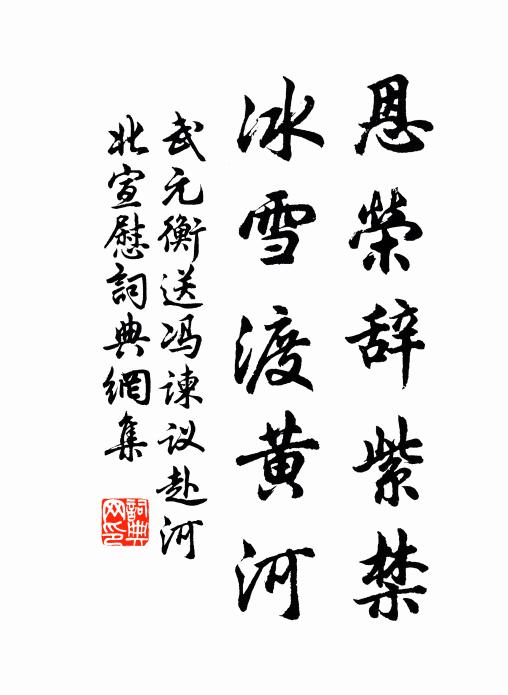 恩榮辞紫禁
冰雪渡黄河
武元衡送冯谏议赴河
北宣慰詞典網集
詞典网印